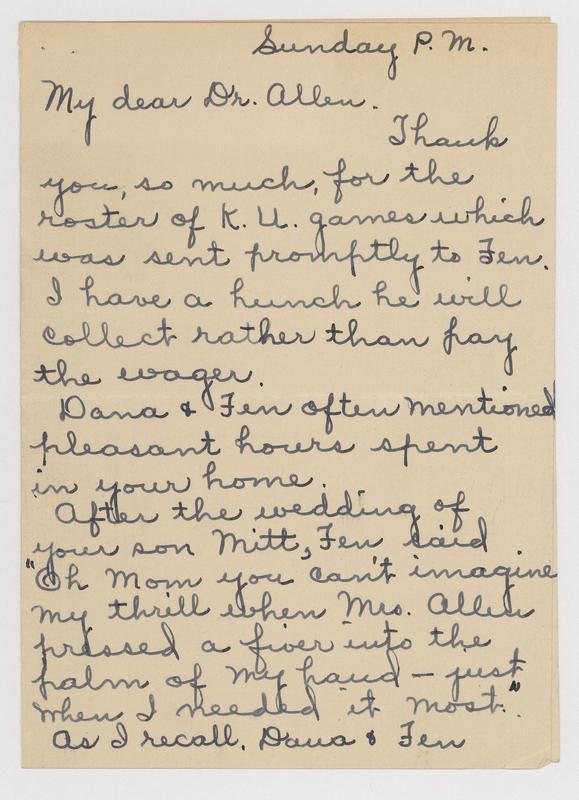 Sunday P. M.
My dear Dr. Allen.
Thank
you, so much, for the
roster of K. U. games which
was sent promptly to Fen.
I have a hunch he will
collect rather than pay
the wager.
Dana & Fen often mentioned
pleasant hours spent
in your home.
After the wedding of
your son Mitt, Fen said
"Oh Mom you can't imagine
my thrill when Mrs. Allen
pressed a fiver into the
palm of my hand — just
when I needed it most."
As I recall, Dana & Fen